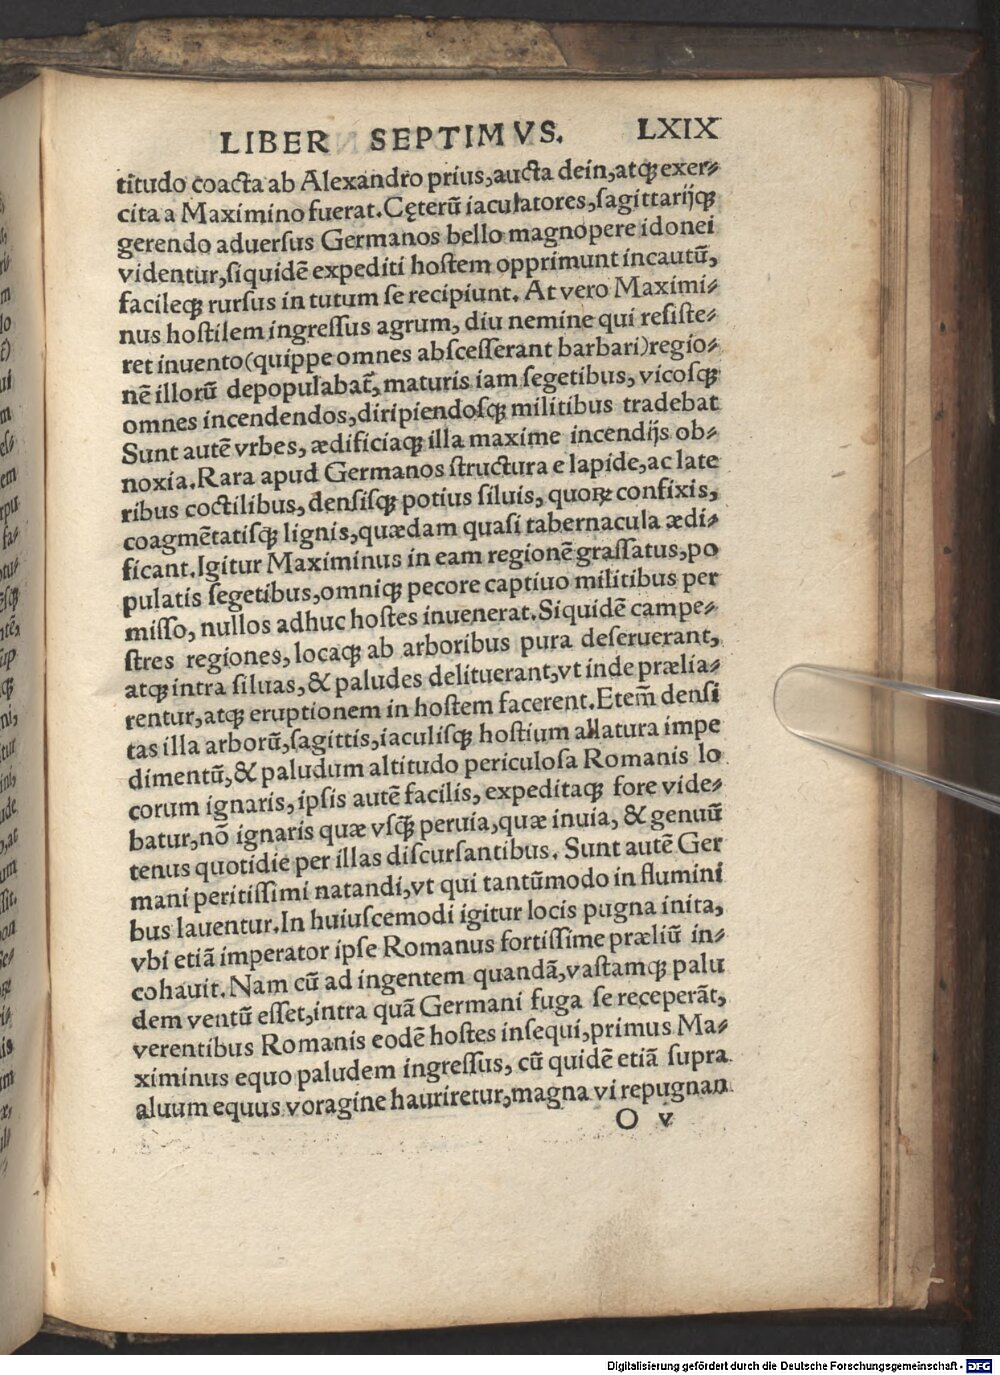 LIBER SEPTIMVS. LXIX
titudo coacta ab Alexandro prius, aucta dein, atqꝫ exer⸗
cita a Maximino fuerat. Cęterū iaculatores, ſagittarijqꝫ
gerendo aduerſus Germanos bello magnopere idonei
videntur, ſiquidē expediti hoſtem opprimunt incautū,
facileqꝫ rurſus in tutum ſe recipiunt. At vero Maximi⸗
nus hoſtilem ingreſſus agrum, diu nemine qui reſiſte⸗
ret inuento (quippe omnes abſceſſerant barbari) regio⸗
nē illorū depopulabat̃, maturis iam ſegetibus, vicoſqꝫ
omnes incendendos, diripiendoſqꝫ militibus tradebat
Sunt autē vrbes, ædificiaqꝫ illa maxime incendijs ob⸗
noxia. Rara apud Germanos ſtructura e lapide, ac late
ribus coctilibus, denſiſqꝫ potius ſiluis, quoꝝ confixis,
coagmētatiſqꝫ lignis, quædam quaſi tabernacula ædi⸗
ficant. Igitur Maximinus in eam regionē graſſatus, po
pulatis ſegetibus, omniqꝫ pecore captiuo militibus per
miſſo, nullos adhuc hoſtes inuenerat. Siquidē campe⸗
ſtres regiones, locaqꝫ ab arboribus pura deſeruerant,
atqꝫ intra ſiluas, & paludes delituerant, vt inde prælia⸗
rentur, atqꝫ eruptionem in hoſtem facerent. Etem̃ denſi
tas illa arborū, ſagittis, iaculiſqꝫ hoſtium allatura impe
dimentū, & paludum altitudo periculoſa Romanis lo
corum ignaris, ipſis autē facilis, expeditaqꝫ fore vide⸗
batur, nō ignaris quæ vſqꝫ̃ peruia, quæ inuia, & genuū
tenus quotidie per illas diſcurſantibus. Sunt autē Ger
mani peritiſſimi natandi, vt qui tantūmodo in flumini
bus lauentur. In huiuſcemodi igitur locis pugna inita,
vbi etiā imperator ipſe Romanus fortiſſime præliū in⸗
cohauit. Nam cū ad ingentem quandā, vaſtamqꝫ palu
dem ventū eſſet, intra quā Germani fuga ſe receperāt,
verentibus Romanis eodē hoſtes inſequi, primus Ma⸗
ximinus equo paludem ingreſſus, cū quidē etiā ſupra
aluum equus voragine hauriretur, magna vi repugnan
O v
Digitalisierung gefördert durch die Deutsche Forschungsgemeinschaft - DFG